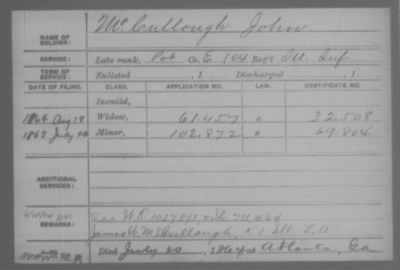 NAME OF SOLDIER: McCullough John
SERVICE: Late rank, Pvt Co. E, 104 Reg't Ill. Inf
TERM OF SERVICE: Enlisted , 1 Discharged , 1
DATE OF FILING. CLASS. APPLICATION NO. LAW. CERTIFICATE NO.
Invalid,
1864 Aug 18 Widow, 61.457 32.508
1865 July Minor, 102,872 69.804
ADDITIONAL SERVICES:
REMARKS: See W.O. 1027891,
James H. McCullough, K 1 Ill. L.A.
Died July 20, 1864 at Atlanta, Ga